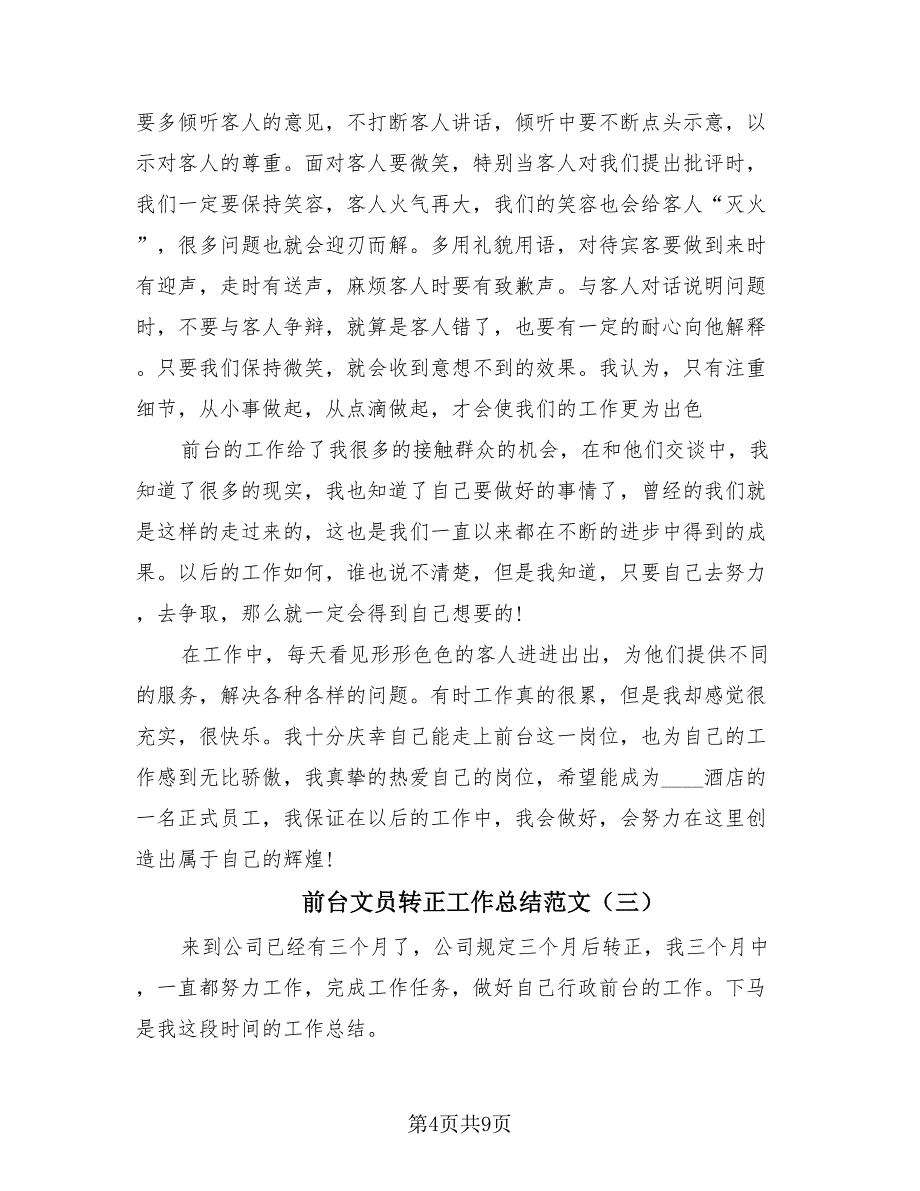 要多倾听客人的意见，不打断客人讲话，倾听中要不断点头示意，以
示对客人的尊重。面对客人要微笑，特别当客人对我们提出批评时，
我们一定要保持笑容，客人火气再大，我们的笑容也会给客人“灭火
”，很多问题也就会迎刃而解。多用礼貌用语，对待宾客要做到来时
有迎声，走时有送声，麻烦客人时要有致歉声。与客人对话说明问题
时，不要与客人争辩，就算是客人错了，也要有一定的耐心向他解释
。只要我们保持微笑，就会收到意想不到的效果。我认为，只有注重
细节，从小事做起，从点滴做起，才会使我们的工作更为出色
前台的工作给了我很多的接触群众的机会，在和他们交谈中，我
知道了很多的现实，我也知道了自己要做好的事情了，曾经的我们就
是这样的走过来的，这也是我们一直以来都在不断的进步中得到的成
果。以后的工作如何，谁也说不清楚，但是我知道，只要自己去努力
，去争取，那么就一定会得到自己想要的!
在工作中，每天看见形形色色的客人进进出出，为他们提供不同
的服务，解决各种各样的问题。有时工作真的很累，但是我却感觉很
充实，很快乐。我十分庆幸自己能走上前台这一岗位，也为自己的工
作感到无比骄傲，我真挚的热爱自己的岗位，希望能成为____酒店的
一名正式员工，我保证在以后的工作中，我会做好，会努力在这里创
造出属于自己的辉煌!
前台文员转正工作总结范文（三）
来到公司已经有三个月了，公司规定三个月后转正，我三个月中
，一直都努力工作，完成工作任务，做好自己行政前台的工作。下马
是我这段时间的工作总结。
第4页共9页